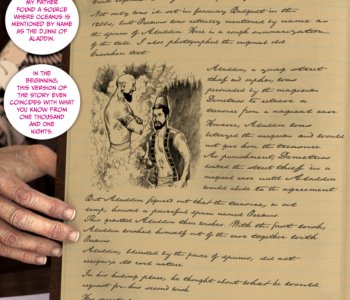 MY FATHER
FOUND A SOURCE
WHERE OCEANUS IS
MENTIONED BY NAME
AS THE DJINN OF
ALADDIN.
IN THE
BEGINNING,
THIS VERSION OF
THE STORY EVEN
COINCIDES WITH WHAT
YOU KNOW FROM
ONE THOUSAND
AND ONE
NIGHTS.
Not only did it set in faraway
but Oceanus was actually mentioned by name as
the djinn of Aladdin. Here is a rough summarization
of the tale. I also photographed the original old
text
Aladdin, a young street
thief and orphan, was
persuaded by the magician
to retrieve a
treasure from a magical cave
However, Aladdin
betrayed the magician and would
not give him the treasure
As punishment,
locked the street thief in a
magical cave until Aladdin
would abide to the agreement
But Aladdin figured out that the treasure, an oil
lamp, housed a powerful djinn named Oceanus
This granted Aladdin three wishes. With the first wish,
Aladdin wished himself out of the cave together with
Oceanus
Aladdin, blinded by the power of djinnis, did not
recognize its evil nature
In his hiding place, he thought about what he would
request for his second wish